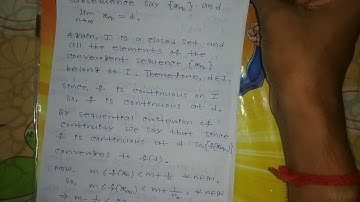 subsequence say {xₙ} and
lim xₙ = d.
n→∞
Again, I is a closed set and
all the elements of the
convergent sequence {xₙ}
belong to I. Therefore, d∈I.
Since f is continuous on I
so, f is continuous at d.
By sequential criterion of
continuity we say that since
f is continuous at d so, {f(xₙ)}
converges to f(d).
Now, m ≤ f(xₙ) < m + 1/n ∀ n∈N,
so, m ≤ f(xₙ) < m + 1/n, ∀ n∈N
⇒ m -